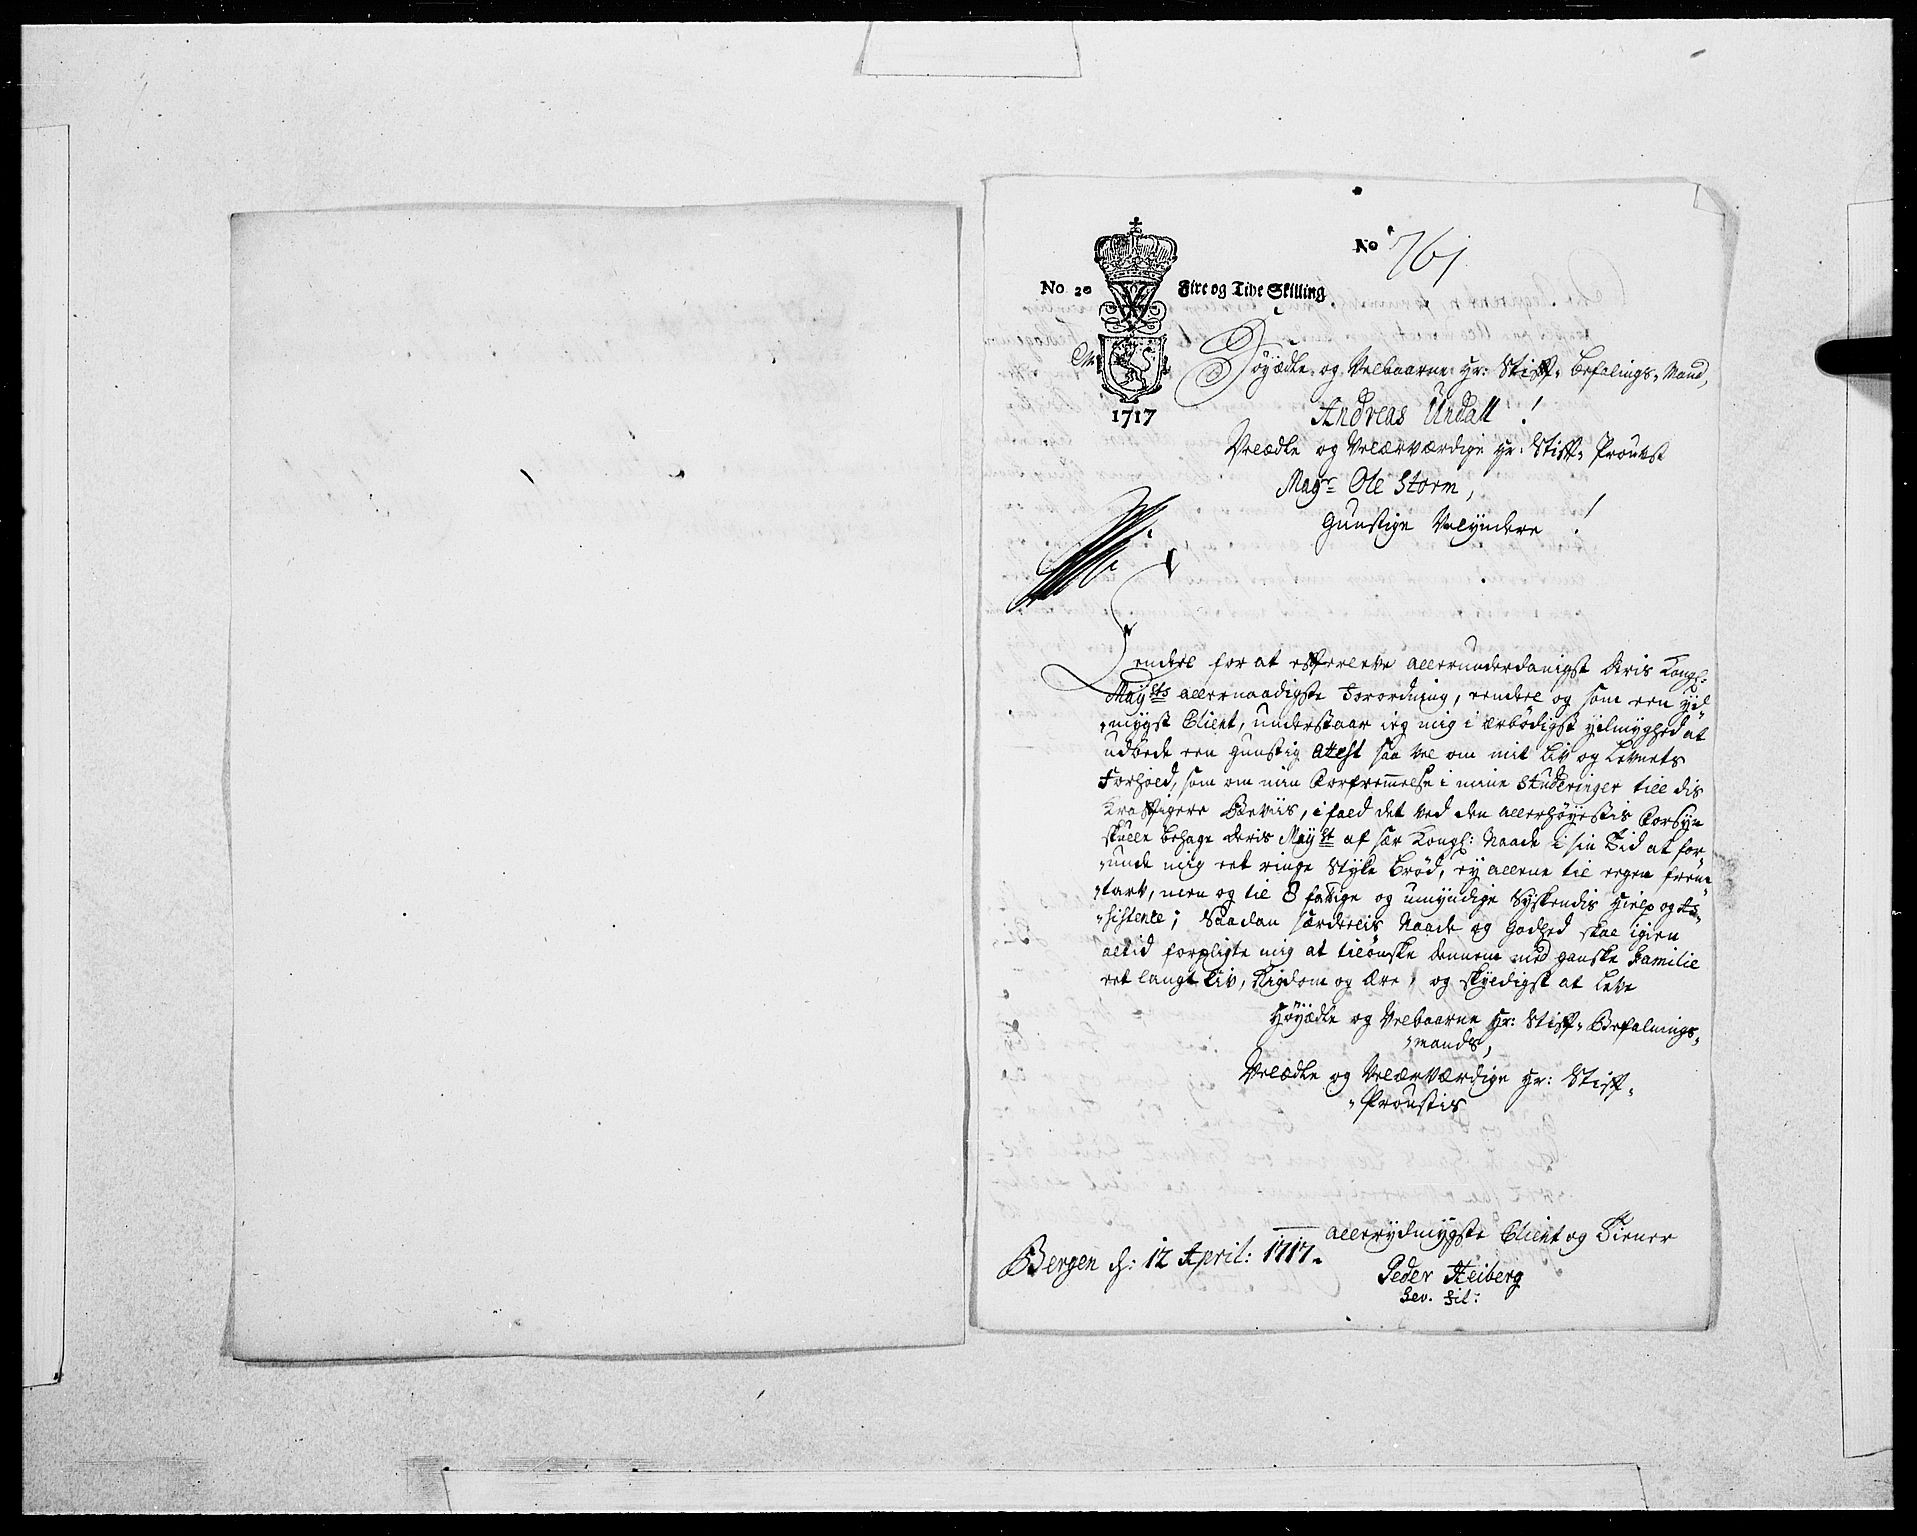 No 761
No 20 Fire og Tive Skilling
1717
Høyædle og Velbaarne Hr: Stift-Befalings-Mand,
Andreas Undall !
Velædle og Velærværdige Hr: Stift-Proubst
Magr Ole Storm,
Gunstige Velyndere !
for at efterleve allerunderdanigst deris Kongl:
Mayts allernaadigste Forordning, og som een yd-
-mygst Client, understaar ieg mig i ærbødigst ydmyghed at
udbede een gunstig attest saa vel om mit Liv og Levnets
Forhold, som om min Forfremmelse i mine Studeringer till dis
Kraftigere Beviis, ifald det ved den allerhøyestis Forsyn
skulle behage deris Mayst af sær Kongl: Naade i sin Tid at for-
-unde mig eet ringe Styke Brød, ey allene til egen frem-
-tarv, men og til 8 fattige og umyndige Syskendis Hielp og As-
-sistence; Saadan særdeelis Naade og Godhed skal igien
altid forpligte mig at tilønske dennem med ganske Familie
eet langt Liv, Rigdom og Ære, og skyldigst at Leve
Høyædle og Velbaarne Hr: Stift-Befalnings-
-mands,
Velædle og Velærværdige Hr: Stift-
-Proustis
allerydmygste Client og Tiener
Bergen d: 12 April: 1717.
Peder Heiberg
Sev. Fil: